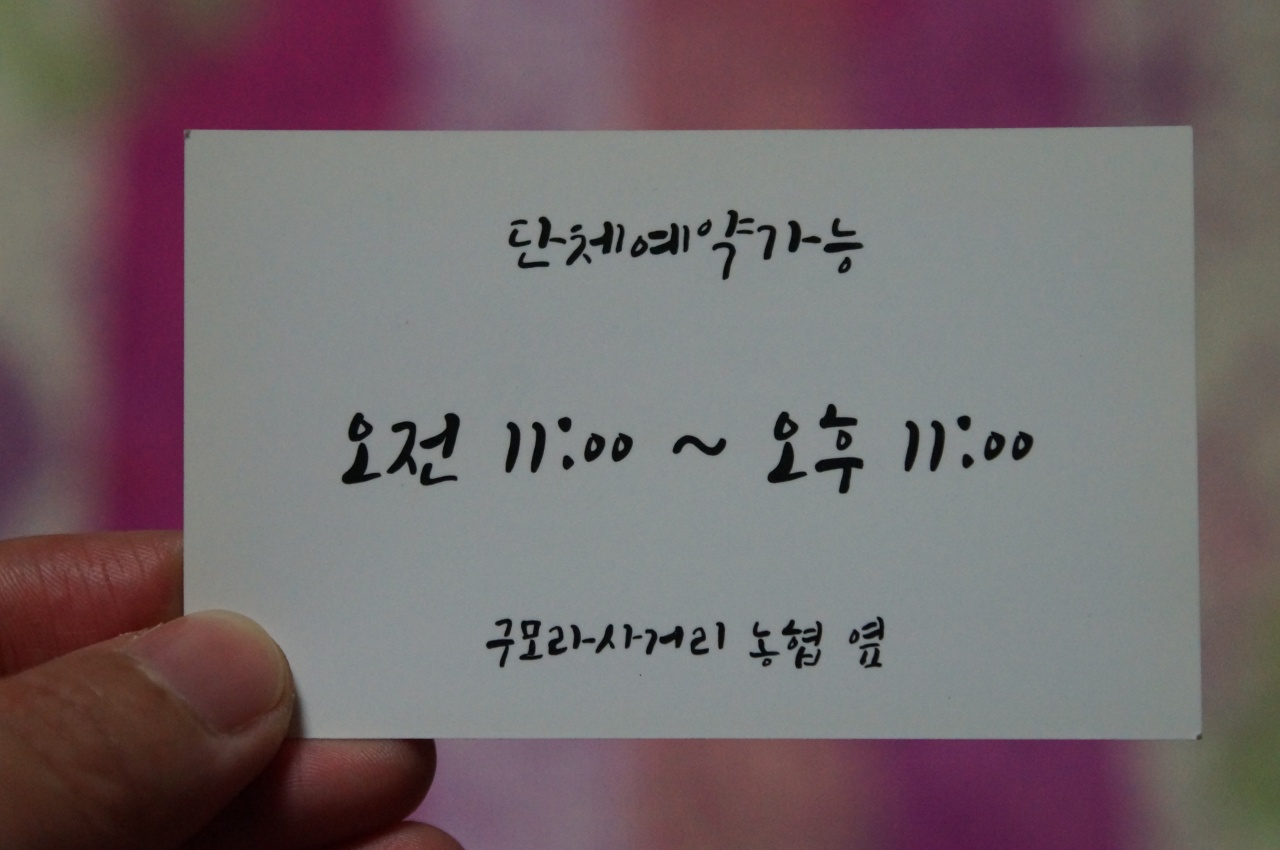 단체예약가능
오전 11:00 ~ 오후 11:00
구모라사거리 농협 옆